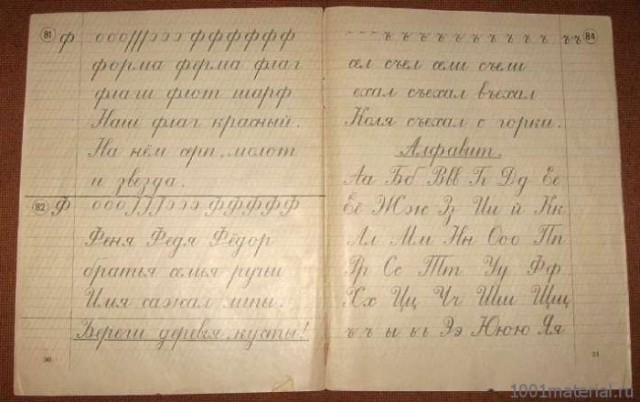 81 ф ооо эээ фффффф
форма ферма флаг
флаги флот шарф
Наш флаг красный.
На нём серп, молот
и звезда.
82 Ф ооо эээ ффффф
Феня Федя Фёдор
братья семья ручьи
Илья сажал липы.
Береги деревья, кусты!
30
ъ ъ ъ ъ ъ ъ ъ ъ ъ ъ ъ ъъ 84
сел съел сели съели
ехал съехал въехал
Коля съехал с горки.
Алфавит.
Аа Бб Ввв Гг Дд Ее
Ёё Жж Зз Ии й Кк
Лл Мм Нн Ооо Пп
Рр Сс Тт Уу Фф
Хх Цц Чч Шш Щщ
ъ ъ ы ь ь Ээ Ююю Яя
31
1001material.ru